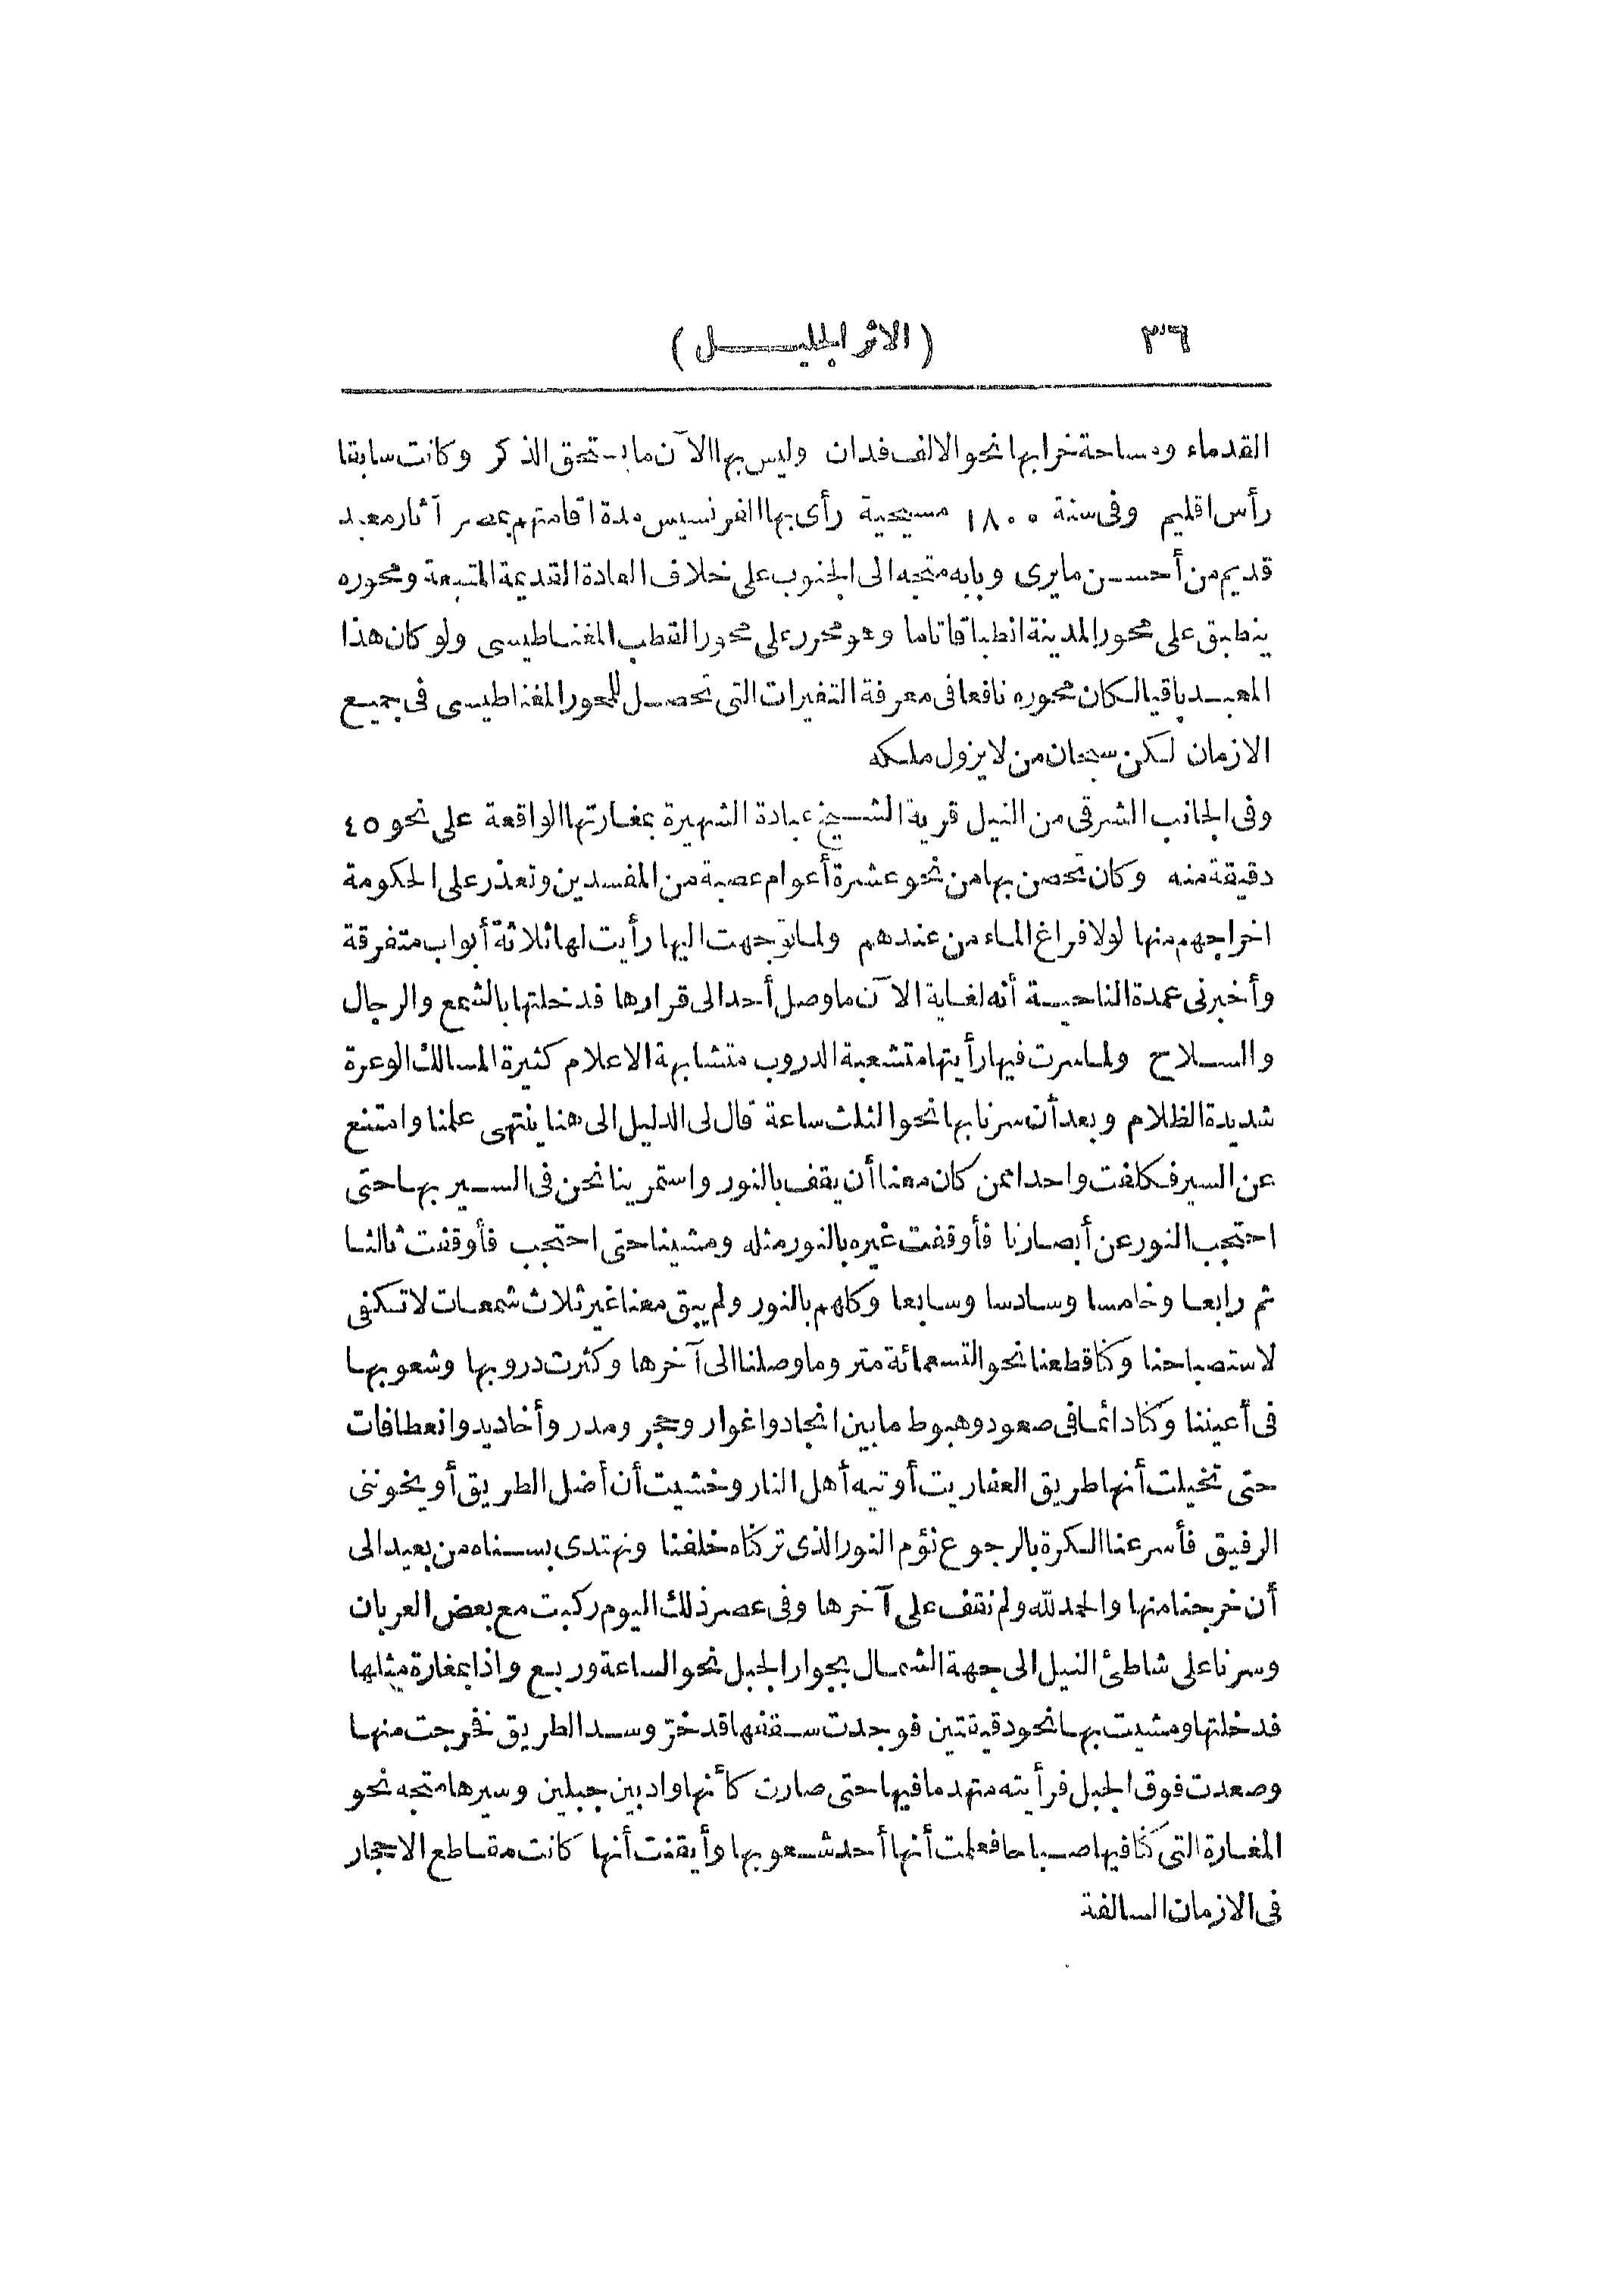 ٣٦ (الاثر الجليل)
القدماء ومساحة خرابها نحو الالف فدان وليس بها الآن ما يستحق الذكر وكانت سابقا
رأس اقليم وفى سنة ١٨٠٠ مسيحية رأى بها الفرنسيس مدة اقامتهم بمصر آثار معبد
قديم من أحسن ما يرى وبابه متجه الى الجنوب على خلاف العادة القديمة المتبعة ومحوره
ينطبق على محور المدينة انطباقا تاما وهو محرر على محور القطب المغناطيسى ولو كان هذا
المعبد باقيا لكان محوره نافعا فى معرفة التغيرات التى تحصل للمحور المغناطيسى فى جميع
الازمان لكن سبحان من لا يزول ملكه
وفى الجانب الشرقى من النيل قرية الشيخ عبادة الشهيرة بمغارتها الواقعة على نحو ٤٥
دقيقة منه وكان تحصن بها من نحو عشرة أعوام عصبة من المفسدين وتعذر على الحكومة
اخراجهم منها لولا فراغ الماء من عندهم ولما توجهت اليها رأيت لها ثلاثة أبواب متفرقة
وأخبرنى عمدة الناحية أنه لغاية الآن ما وصل أحد الى قرارها فدخلتها بالشمع والرجال
والسلاح ولما سرت فيها رأيتها متشعبة الدروب متشابهة الاعلام كثيرة المسالك الوعرة
شديدة الظلام وبعد أن سرنا بها نحو الثلث ساعة قال لى الدليل الى هنا ينتهى علمنا وامتنع
عن السير فكلفت واحدا ممن كان معنا أن يقف بالنور واستمرينا نحن فى السير بها حتى
احتجب النور عن أبصارنا فأوقفت غيره بالنور مثله ومشينا حتى احتجب فأوقفت ثالثا
ثم رابعا وخامسا وسادسا وسابعا وكلهم بالنور ولم يبق معنا غير ثلاث شمعات لا تكفى
لاستصباحنا وكنا قطعنا نحو التسعمائة متر وما وصلنا الى آخرها وكثرت دروبها وشعوبها
فى أعيننا وكنا دائما فى صعود وهبوط ما بين انجاد واغوار وحجر ومدر وأخاديد وانعطافات
حتى تخيلت أنها طريق العفاريت أو تيه أهل النار وخشيت أن أضل الطريق أو يخوننى
الرفيق فأسرعنا الكرة بالرجوع نؤم النور الذى تركناه خلفنا ونهتدى بسناه من بعيد الى
أن خرجنا منها والحمد لله ولم نقف على آخرها وفى عصر ذلك اليوم ركبت مع بعض العربان
وسرنا على شاطئ النيل الى جهة الشمال بجوار الجبل نحو الساعة وربع واذا بمغارة مثلها
فدخلتها ومشيت بها نحو دقيقتين فوجدت سقفها قد خرّ وسد الطريق فخرجت منها
وصعدت فوق الجبل فرأيته متهدما فيها حتى صارت كأنها واد بين جبلين وسيرها متجه نحو
المغارة التى كنا فيها صباحا فعلمت أنها أحد شعوبها وأيقنت أنها كانت مقاطع الاحجار
فى الازمان السالفة